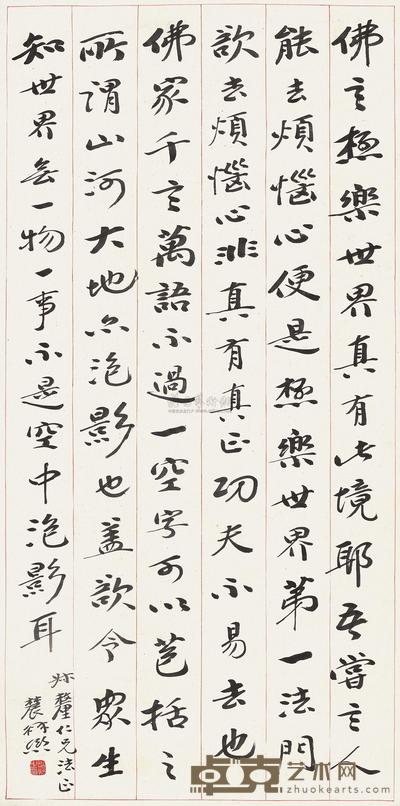 佛言極樂世界真有此境耶吾嘗言人
能去煩惱心便是極樂世界第一法門
欲去煩惱心非真有真正功夫不易去也
佛家千言萬語不過一空字可以包括之
所謂山河大地亦泡影也蓋欲令眾生
知世界無一物一事不是空中泡影耳
仁兄法正
卓克艺术网
www.zhuokearts.com